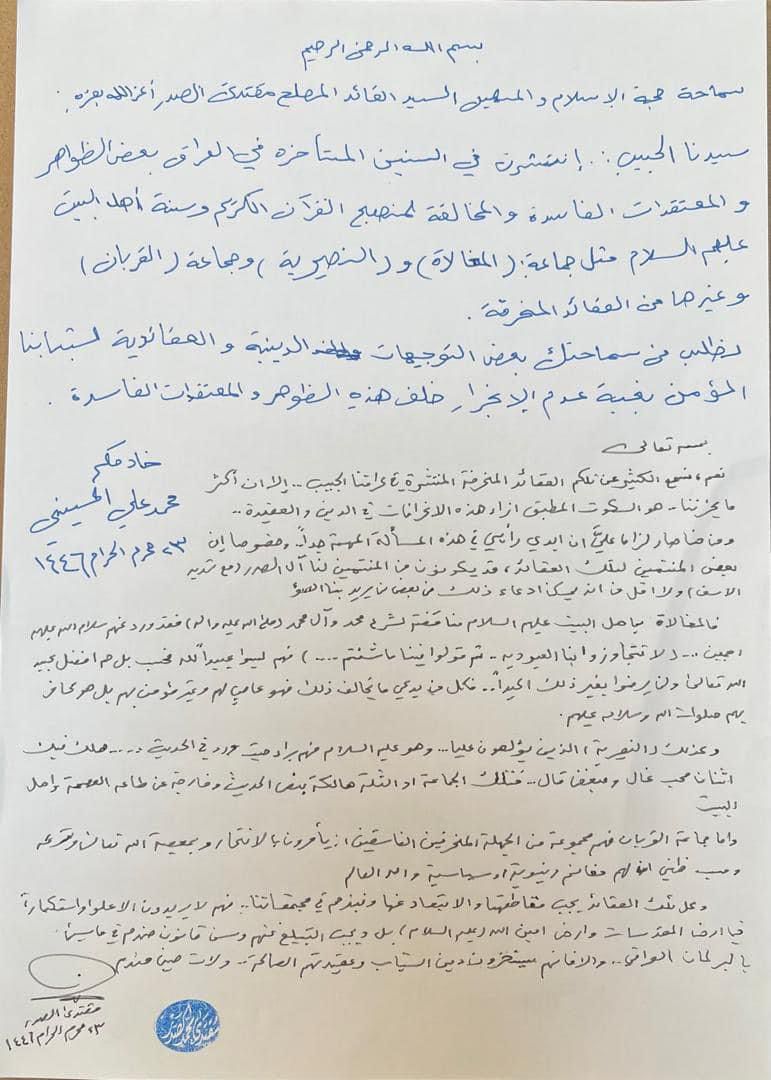 بسم الله الرحمن الرحيم
سماحة حجة الإسلام والمسلمين السيد القائد المصلح مقتدى الصدر أعزه الله بعزه.
سيدنا الحبيب.. إنتشرت في السنين المتأخرة في العراق بعض الظواهر
والمعتقدات الفاسدة والمخالفة لمنهج القرآن الكريم وسنة أهل البيت
عليهم السلام مثل جماعة: (المغالاة) و(النصيرية) وجماعة (القربان)
وغيرها من العقائد المنحرفة.
نطلب من سماحتك بعض التوجيهات الدينية والعقائدية لشبابنا
المؤمن بغية عدم الإنجرار خلف هذه الظواهر والمعتقدات الفاسدة.
خادمكم
محمد علي الحسيني
٢٣ محرم الحرام / ١٤٤٦
بسمه تعالى
نعم، نسمع الكثير عن تلكم العقائد المنحرفة المنتشرة في عراقنا الحبيب.. إلا ان أكثر
ما يحزننا.. هو السكوت المطبق ازاء هذه الانحرافات في الدين والعقيدة..
ومن هنا صار لزاما عليَّ ان ابدي رأيي في هذه المسألة المهمة جداً.. وخصوصا إن
بعض المنتمين لتلك العقائد، قد يكونون من المنتمين لنا آل الصدر (مع شديد
الاسف) ولا اقل من انه يمكن ادعاء ذلك من بعض من يريد بنا السوء
فالمغالاة بأهل البيت عليهم السلام مناقضة لشرع محمد وآل محمد (صلى الله عليه واله) فقد ورد عنهم سلام الله عليهم
اجمعين.. (لا تتجاوزوا بنا العبودية.. ثم قولوا فينا ما شئتم ....) فهم ليسوا عبيداً لله فحسب بل هم افضل عبيد
الله تعالى ولن يرضوا بغير ذلك ابداً.. فكل من يدعي ما يخالف ذلك فهو عاصٍ لهم وغير مؤمن بهم بل هو كافر
بهم صلوات الله وسلامه عليهم.
وكذلك (النصيرية) الذين يؤلهون عليا... وهو عليه السلام منهم براء حيث ورد في الحديث ..... هلك فيك
اثنان محب غال ومبغض قال.. فتلك الجماعة او الثلة هالكة بنص الحديث وخارجة عن طاعة العصمة واهل
البيت
واما جماعة القربان فهم مجموعة من الجهلة المنحرفين الفاسقين اذ يأمرون بالانتحار وبمعصية الله تعالى وشرعه
وحسب ظني ان لهم مغانم دنيوية او سياسية والله العالم
وعلى تلك العقائد يجب مقاطعتها والابتعاد عنها ونبذهم في مجتمعاتنا.. فهم لا يريدون الا علوا واستكباراً
في ارض المقدسات وارض امين الله (عليه السلام) بل ويجب التبليغ عنهم وسن قانون ضدهم
بالبرلمان العراقي.. والا فانهم سينخرون دين الشباب وعقيدتهم الصالحة.. ولات حين مندم
مقتدى الصدر
٢٣ محرم الحرام ١٤٤٦